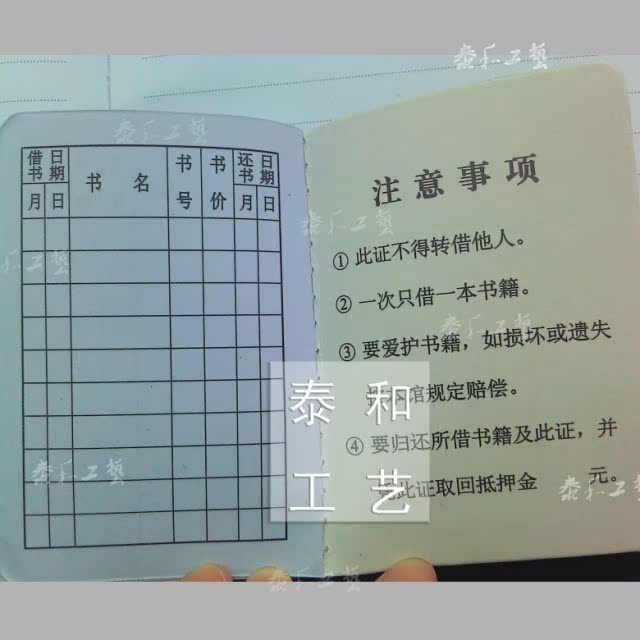 借书 日期
书 名
书号
书价
还书 日期
月 日
月 日
注意事项
① 此证不得转借他人。
② 一次只借一本书籍。
③ 要爱护书籍，如损坏或遗失
本馆规定赔偿。
④ 要归还所借书籍及此证，并
此证取回抵押金 元。
泰和
工艺
泰和工艺
泰和工艺
泰和工艺
泰和工艺
泰和工艺
泰和工艺
泰和工艺
泰和工艺